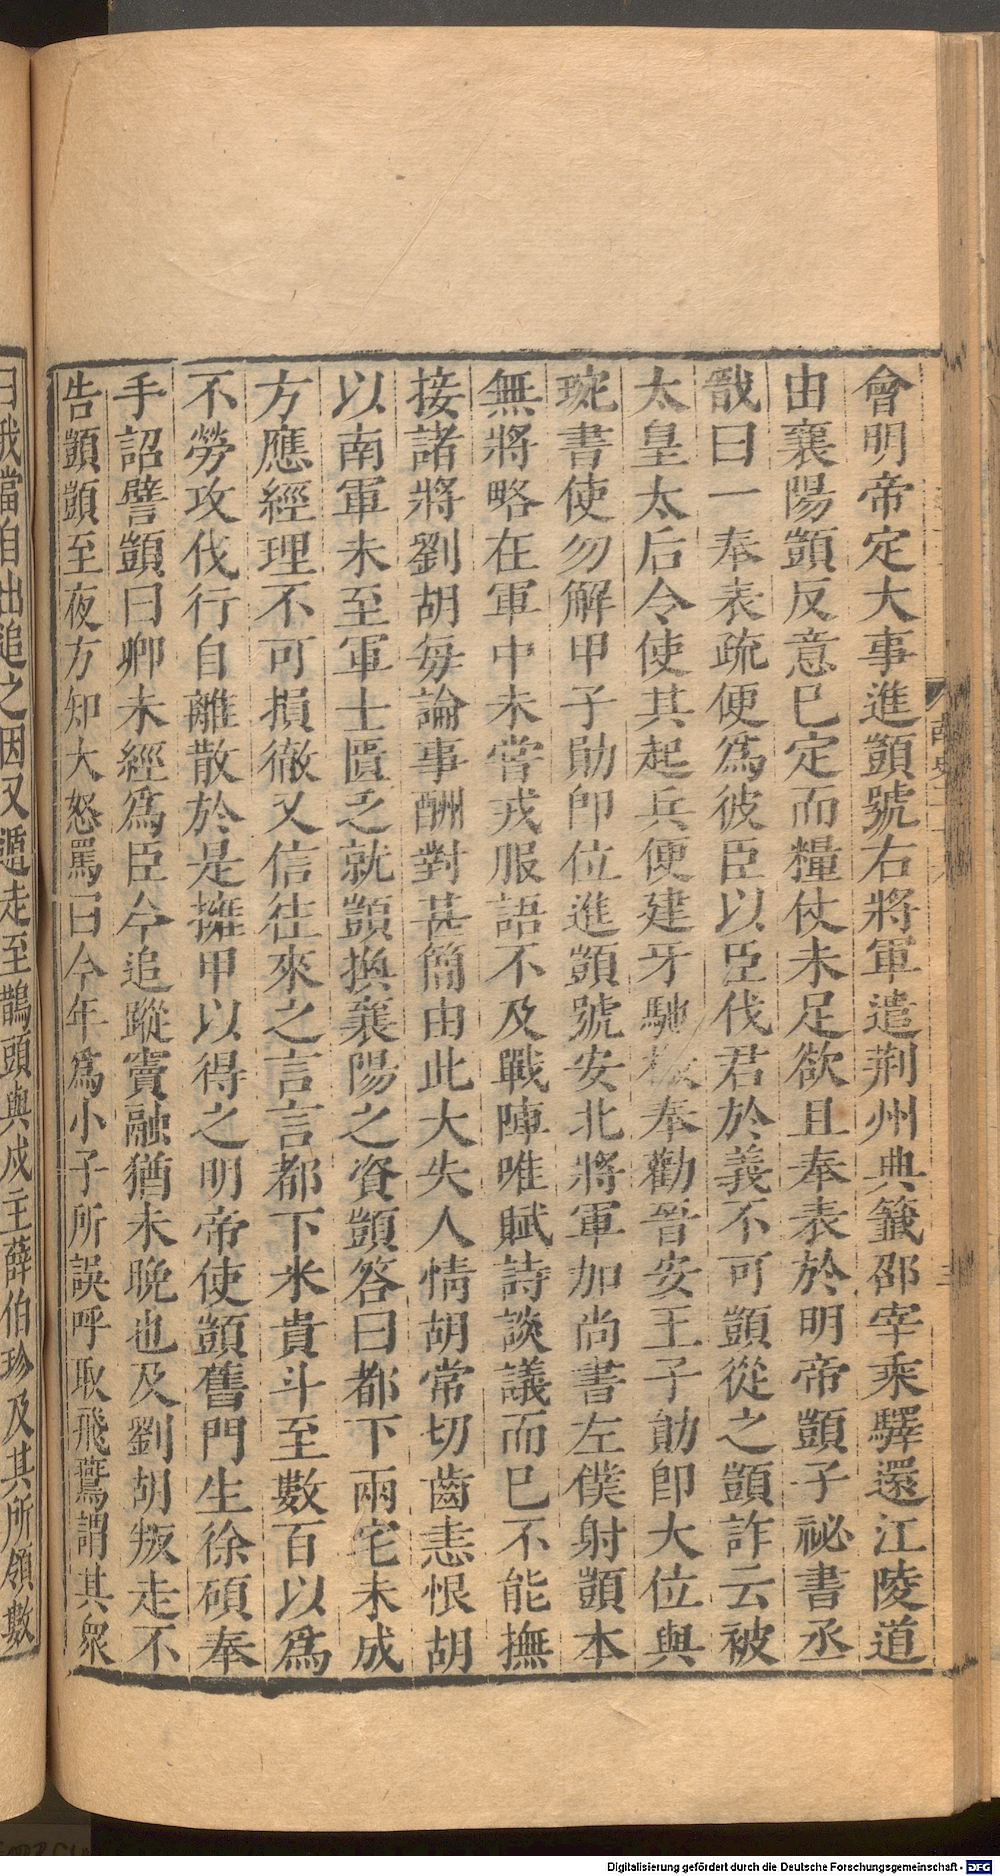 會明帝定大事進顗號右將軍遣荆州典籖邵宰乘驛還江陵道
由襄陽顗反意已定而糧仗未足欲且奉表於明帝顗子祕書丞
戩曰一奉表疏便爲彼臣以臣伐君於義不可顗從之顗詐云被
太皇太后令使其起兵便建牙馳檄奉勸晉安王子勛即大位與
琬書使勿解甲子勛即位進顗號安北將軍加尚書左僕射顗本
無將略在軍中未嘗戎服語不及戰陣唯賦詩談議而已不能撫
接諸將劉胡每論事酬對甚簡由此大失人情胡常切齒恚恨胡
以南軍未至軍士匱乏就顗換襄陽之資顗答曰都下兩宅未成
方應經理不可損徹又信往來之言言都下米貴斗至數百以爲
不勞攻伐行自離散於是擁甲以得之明帝使顗舊門生徐碩奉
手詔譬顗曰卿未經爲臣今追蹤竇融猶未晩也及劉胡叛走不
告顗顗至夜方知大怒罵曰今年爲小子所誤呼取飛鷰謂其衆
曰我當自出追之因又遁走至鵲頭與戍主薛伯珍及其所領數
Digitalisierung gefördert durch die Deutsche Forschungsgemeinschaft - DFG